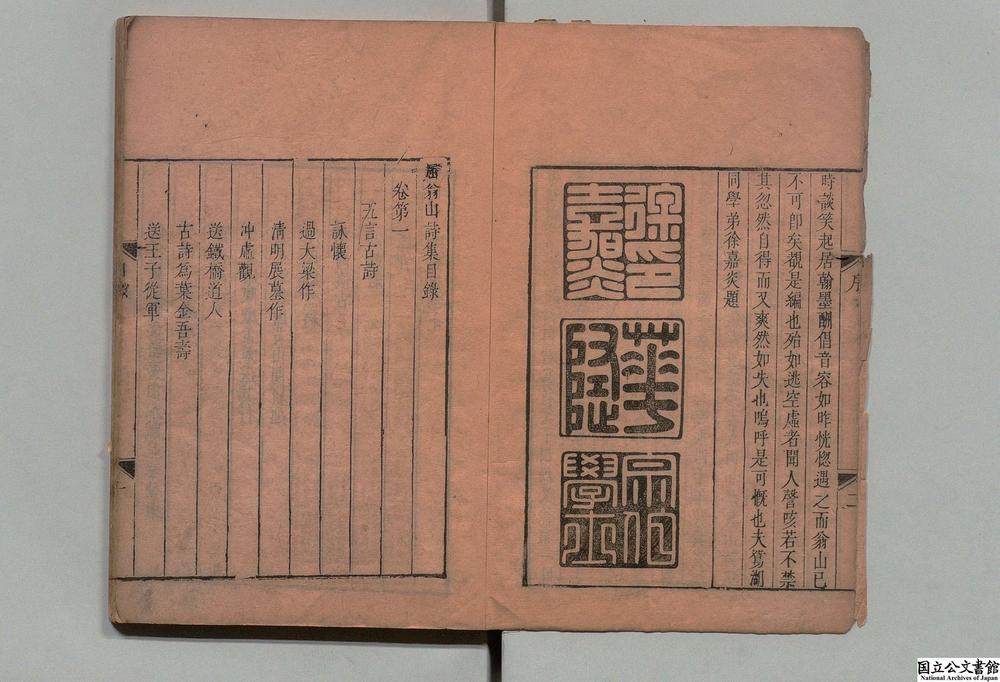 時談笑起居翰墨酬倡音容如昨恍惚遇之而翁山已
不可卽矣覩是編也殆如逃空虛者聞人謦咳若不禁
其忽然自得而又爽然如失也嗚呼是可慨也夫鴛湖
同學弟徐嘉炎題
徐嘉炎印
華隱
序
二
翁山詩集目錄
卷第一
五言古詩
詠懷
過大梁作
清明展墓作
冲虛觀
送鐵橋道人
古詩為葉金吾壽
送王子從軍
目錄
一
国立公文書館
National Archives of Japan